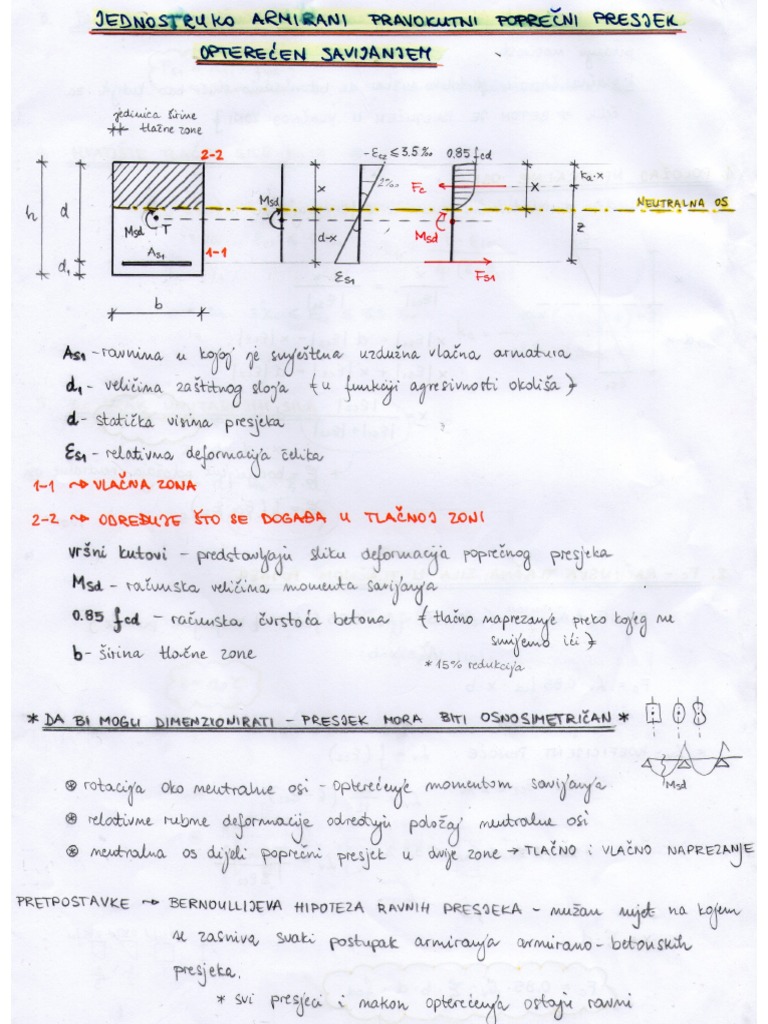 JEDNOSTRUKO ARMIRANI PRAVOKUTNI POPREČNI PRESJEK
OPTEREĆEN SAVIJANJEM
jedinica širine
tlačne zone
2-2
-εc2 ≤ 3.5‰
0.85 fcd
2‰
Fc
x
x
ka·x
h
d
Msd
NEUTRALNA OS
Msd
T
Msd
d-x
z
1-1
As1
d1
εs1
Fs1
b
As1 - ravnina u kojoj je smještena uzdužna vlačna armatura
d1 - veličina zaštitnog sloja (u funkciji agresivnosti okoliša)
d - statička visina presjeka
εs1 - relativna deformacija čelika
1-1 ↝ VLAČNA ZONA
2-2 ↝ ODREĐUJE ŠTO SE DOGAĐA U TLAČNOJ ZONI
vršni kutovi - predstavljaju sliku deformacija poprečnog presjeka
Msd - računska veličina momenta savijanja
0.85 fcd - računska čvrstoća betona (tlačno naprezanje preko kojeg ne
smijemo ići)
b - širina tlačne zone
* 15% redukcija
* DA BI MOGLI DIMENZIONIRATI - PRESJEK MORA BITI OSNOSIMETRIČAN *
Msd
⊛ rotacija oko neutralne osi - opterećenje momentom savijanja
⊛ relativne rubne deformacije određuju položaj neutralne osi
⊛ neutralna os dijeli poprečni presjek u dvije zone → TLAČNO I VLAČNO NAPREZANJE
PRETPOSTAVKE ↝ BERNOULLIJEVA HIPOTEZA RAVNIH PRESJEKA - nužan uvjet na kojem
se zasniva svaki postupak armiranja armirano-betonskih
presjeka.
* svi presjeci i nakon opterećenja ostaju ravni